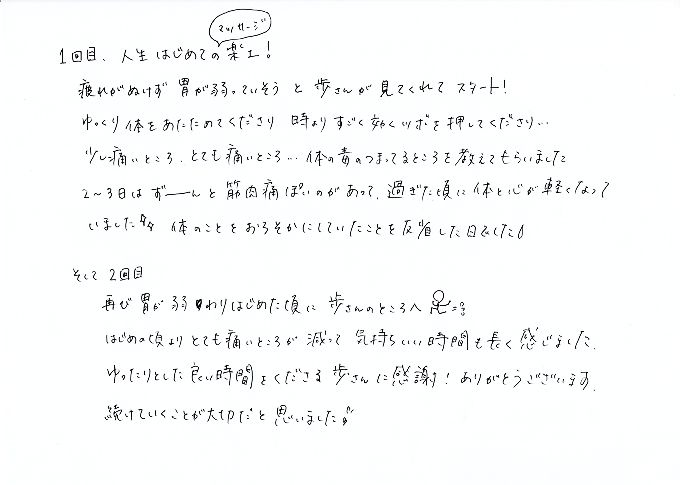 マッサージ
1回目、人生はじめての楽工!
疲れがぬけず 胃が弱っていそう と 歩さんが 見てくれて スタート!
ゆっくり 体をあたためてくださり 時より すごく効くツボを押してくださり…
少し痛いところ、とても痛いところ… 体の毒のつまってるところを教えてもらいました
2～3日は ずーーんと 筋肉痛ぽいのがあって、過ぎた頃に 体と心が 軽くなって
いました 体のことをおろそかにしていたことを反省した日でした
そして 2回目
再び 胃が 弱わりはじめた頃に 歩さんのところへ
はじめの頃より とても痛いところが 減って 気持ちいい時間も長く感じました、
ゆったりとした 良い時間をくださる 歩さんに感謝! ありがとうございます、
続けていくことが大切だと思いました